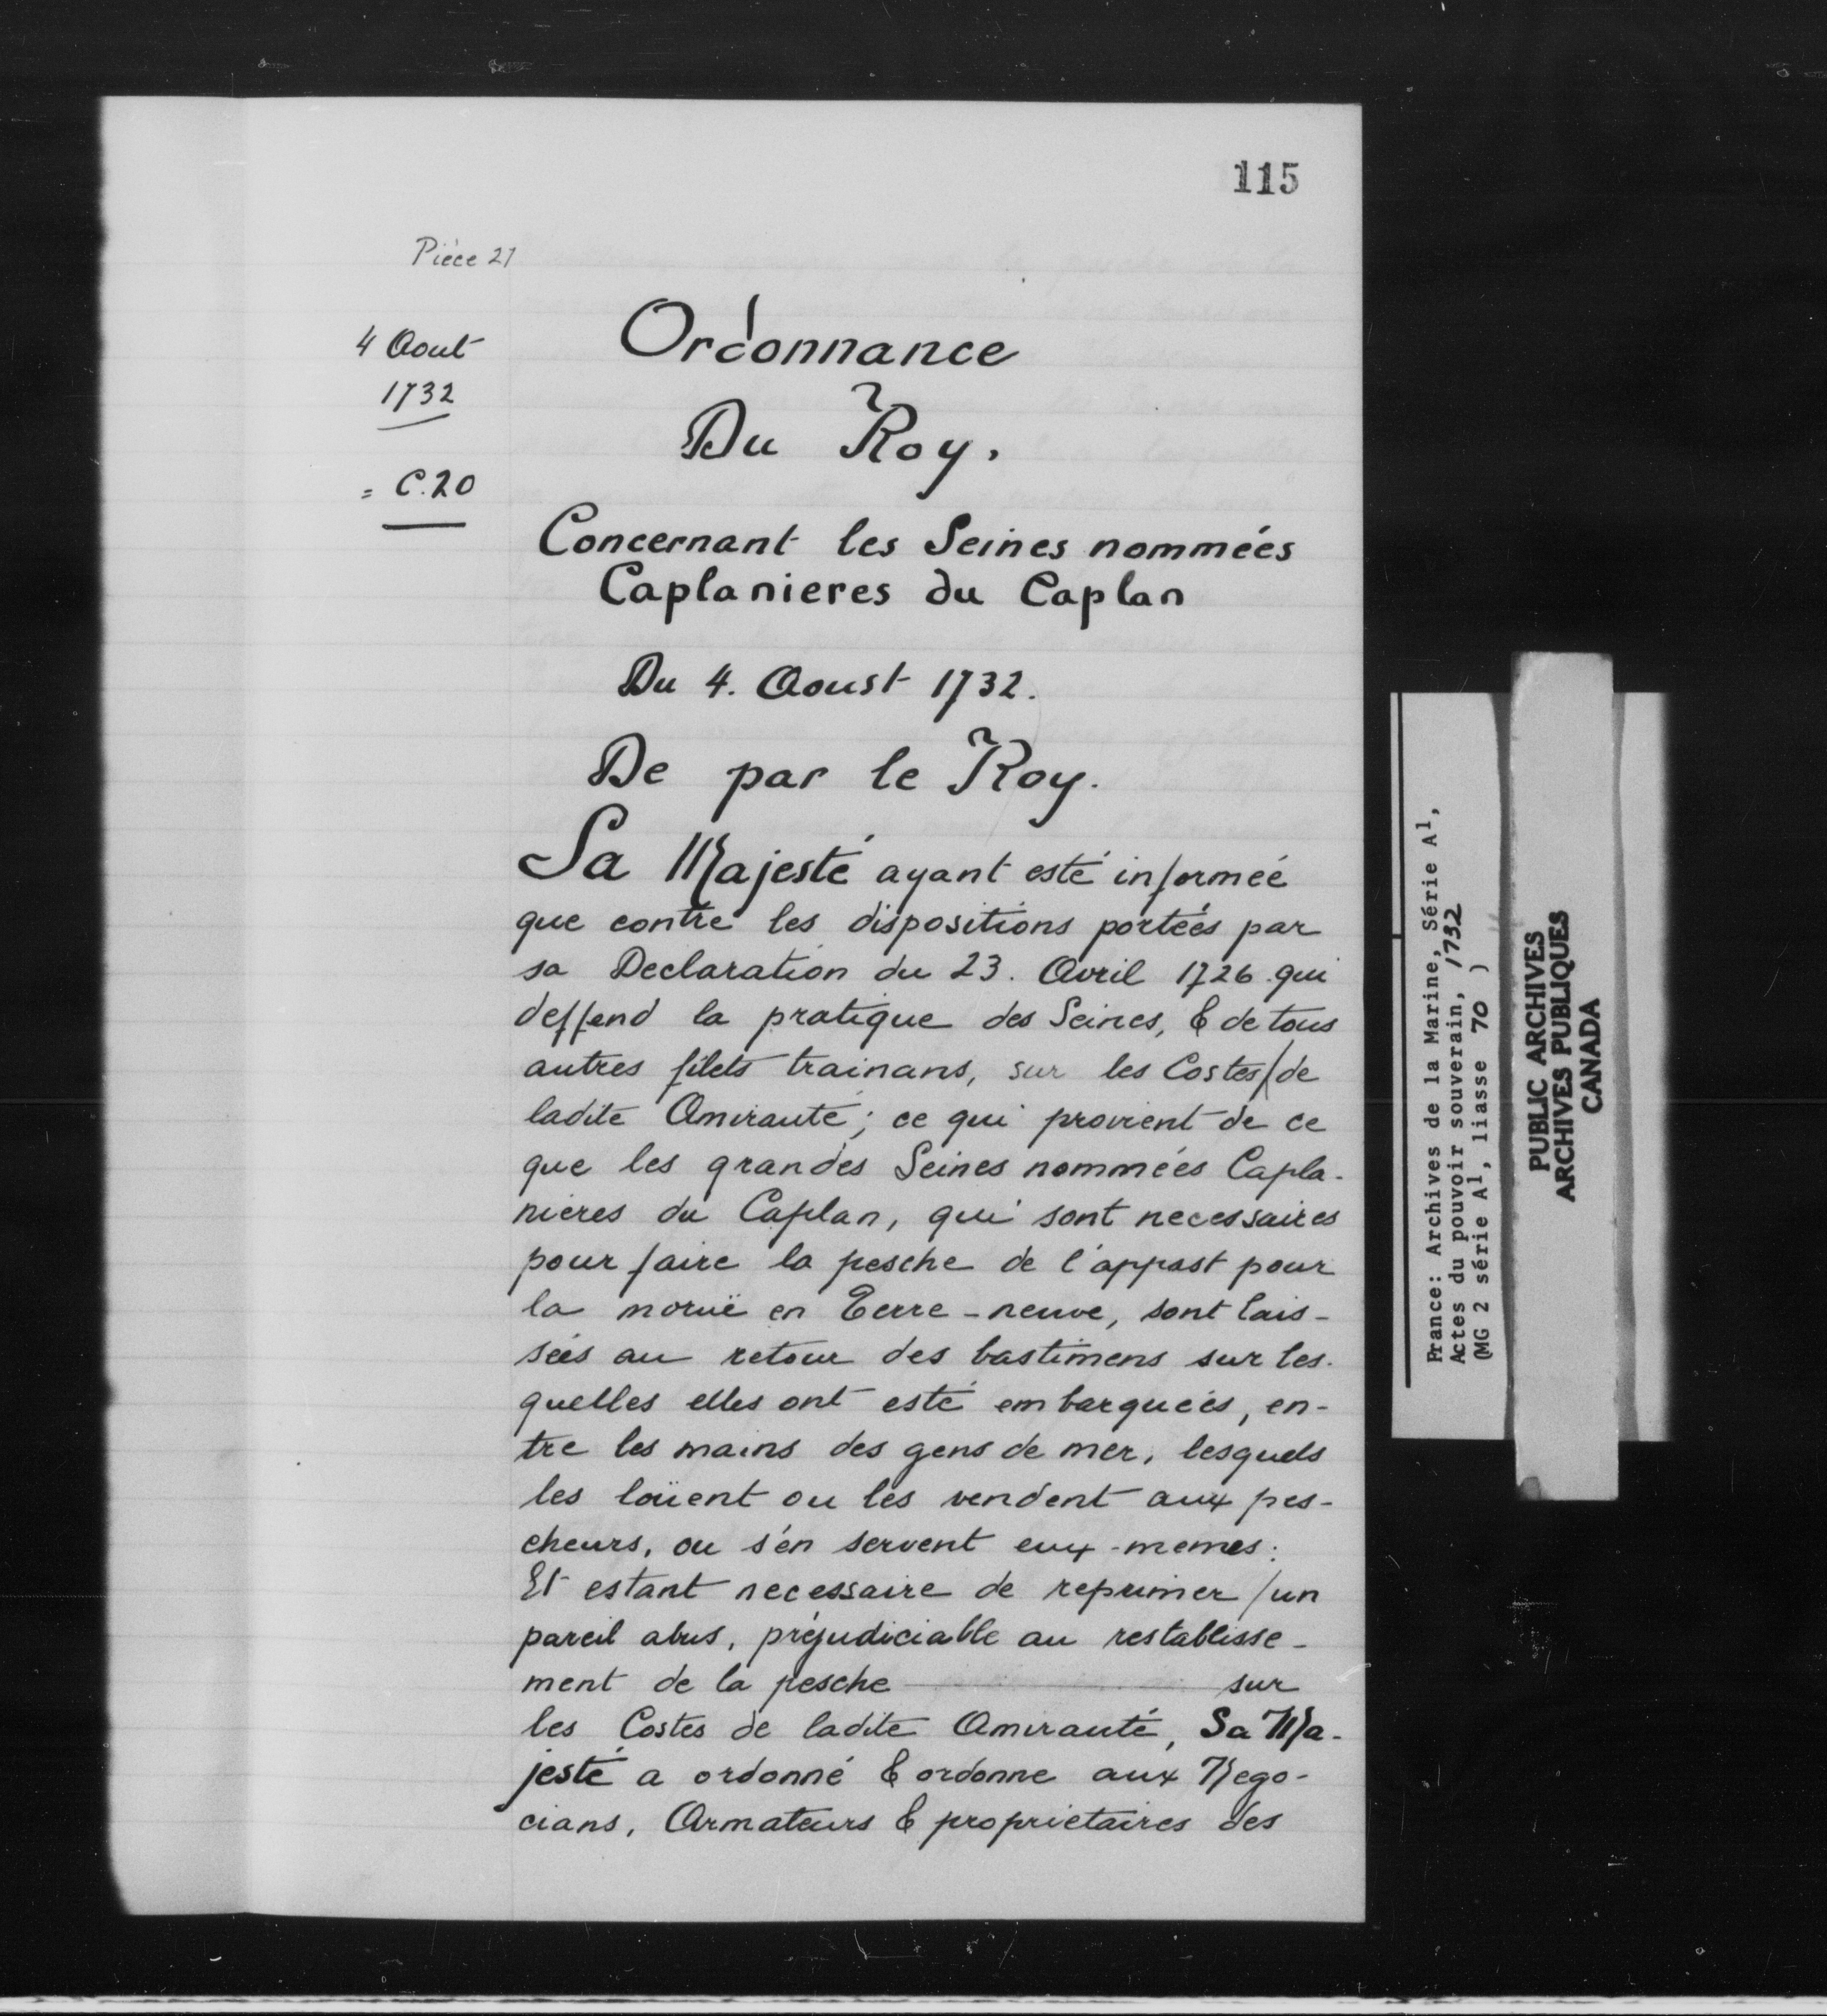 115
Pièce 21
4 Aout
1732
= C.20
Ordonnance
Du Roy.
Concernant les Seines nommées
Caplanieres du Caplan
Du 4. Aoust 1732.
De par le Roy.
Sa Majesté ayant esté informée
que contre les dispositions portées par
sa Declaration du 23. Avril 1726. qui
deffend la pratique des Seines, & de tous
autres filets trainans, sur les Costes/de
ladite Amirauté; ce qui provient de ce
que les grandes Seines nommées Capla-
nieres du Caplan, qui sont necessaires
pour faire la pesche de l'appast pour
la moruë en Terre-neuve, sont lais-
sées au retour des bastimens sur les-
quelles elles ont esté embarquées, en-
tre les mains des gens de mer, lesquels
les loüent ou les vendent aux pes-
cheurs, ou s'en servent eux-memes:
Et estant necessaire de reprimer/un
pareil abus, préjudiciable au restablisse-
ment de la pesche — sur
les Costes de ladite Amirauté, Sa Ma-
jesté a ordonné & ordonne aux Nego-
cians, Armateurs & proprietaires des
France: Archives de la Marine, Série A1,
Actes du pouvoir souverain, 1732
(MG 2 série A1, liasse 70 )
PUBLIC ARCHIVES
ARCHIVES PUBLIQUES
CANADA